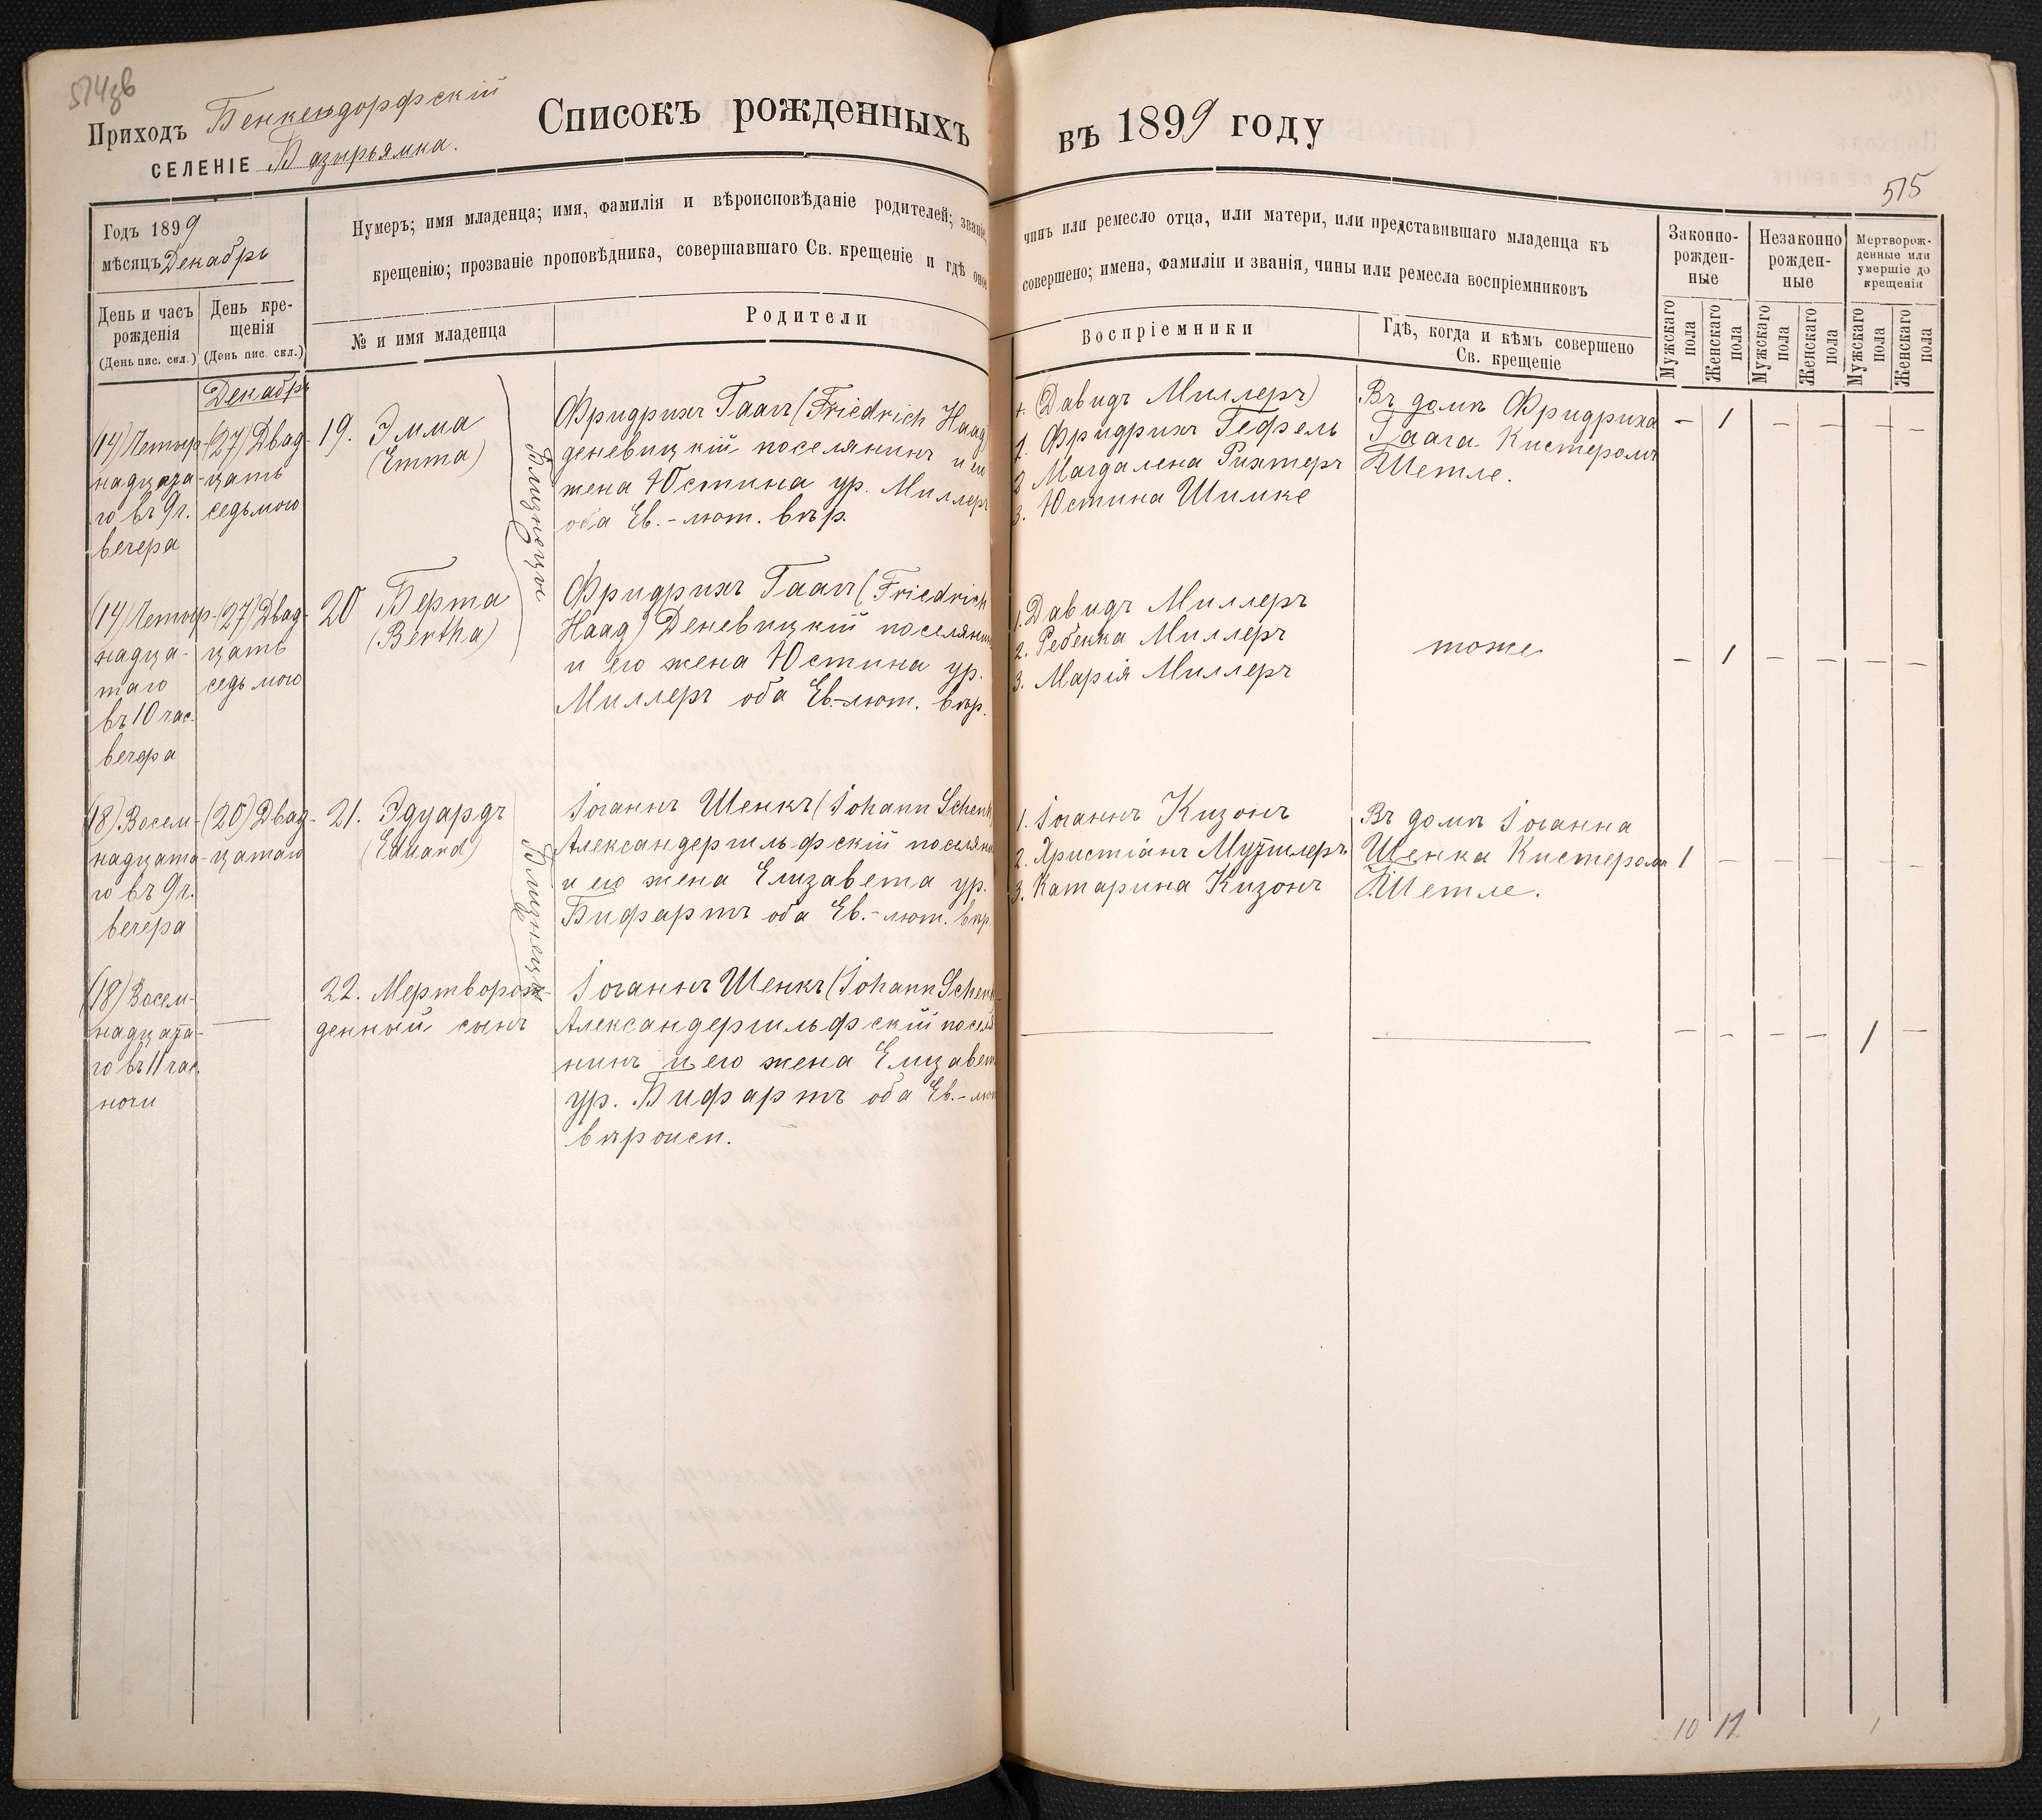 514зв
Приходъ Бенкендорфскій
СЕЛЕНІЕ Базырьямка.
Списокъ рожденныхъ въ 1899 году
515
Годъ 1899
мѣсяцъ Декабрь
Нумеръ; имя младенца; имя, фамилія и вѣроисповѣданіе родителей; званіе,
чинъ или ремесло отца, или матери, или представившаго младенца къ
крещенію; прозваніе проповѣдника, совершавшаго Св. крещеніе и гдѣ оное
совершено; имена, фамиліи и званія, чины или ремесла воспріемниковъ
Законно-
рожден-
ные
Незаконно
рожден-
ные
Мертворож-
денные или
умершіе до
крещенія
День и часъ
рожденія
(День пис. скл.)
День кре-
щенія
(День пис. скл.)
№ и имя младенца
Родители
Воспріемники
Гдѣ, когда и кѣмъ совершено
Св. крещеніе
Мужскаго
пола
Женскаго
пола
Мужскаго
пола
Женскаго
пола
Мужскаго
пола
Женскаго
пола
Декабрь
(14) Четыр-
надцата-
го въ 9 ч.
вечера
(27) Двад-
цать
седьмого
19. Эмма
(Emma)
Близнецы
Фридрихъ Гаагъ (Friedrich Haag)
деневицкій поселянинъ и его
жена Юстина ур. Миллеръ
оба Ев.-лют. вѣр.
+ (Давидъ Миллеръ)
1. Фридрихъ Гефель
2 Магдалена Рихтеръ
3. Юстина Шимке
Въ домѣ Фридриха
Гаага Кистеромъ
Штеле.
- 1 - - - -
(14) Четыр-
надца-
таго
въ 10 час.
вечера
(27) Двад-
цать
седьмого
20 Берта
(Bertha)
Фридрихъ Гаагъ (Friedrich
Haag) Деневицкій поселянинъ
и его жена Юстина ур.
Миллеръ оба Ев.-лют. вѣр.
1. Давидъ Миллеръ
2. Ребекка Миллеръ
3. Марія Миллеръ
тоже
- 1 - - - -
(18) Восем-
надцата-
го въ 9 ч.
вечера
(20) Двад-
цатаго
21. Эдуардъ
(Eduard)
Близнецы
Іоганнъ Шенкъ (Johann Schenk)
Александергильфскій поселянинъ
и его жена Елизавета ур.
Бифартъ оба Ев.-лют. вѣр.
1. Іоганнъ Кизонъ
2. Христіанъ
3. Катарина Кизонъ
Въ домѣ Іоганна
Шенка Кистеромъ
1 - - - - -
(18) Восем-
надцата-
го въ 11 час.
ночи
22. Мертворож-
денный сынъ
Іоганнъ Шенкъ (Johann Schenk)
Александергильфскій поселя-
нинъ и его жена Елизавета
ур. Бифартъ оба Ев.-лют.
вѣроисп.
- - - - 1 -
10 17 1